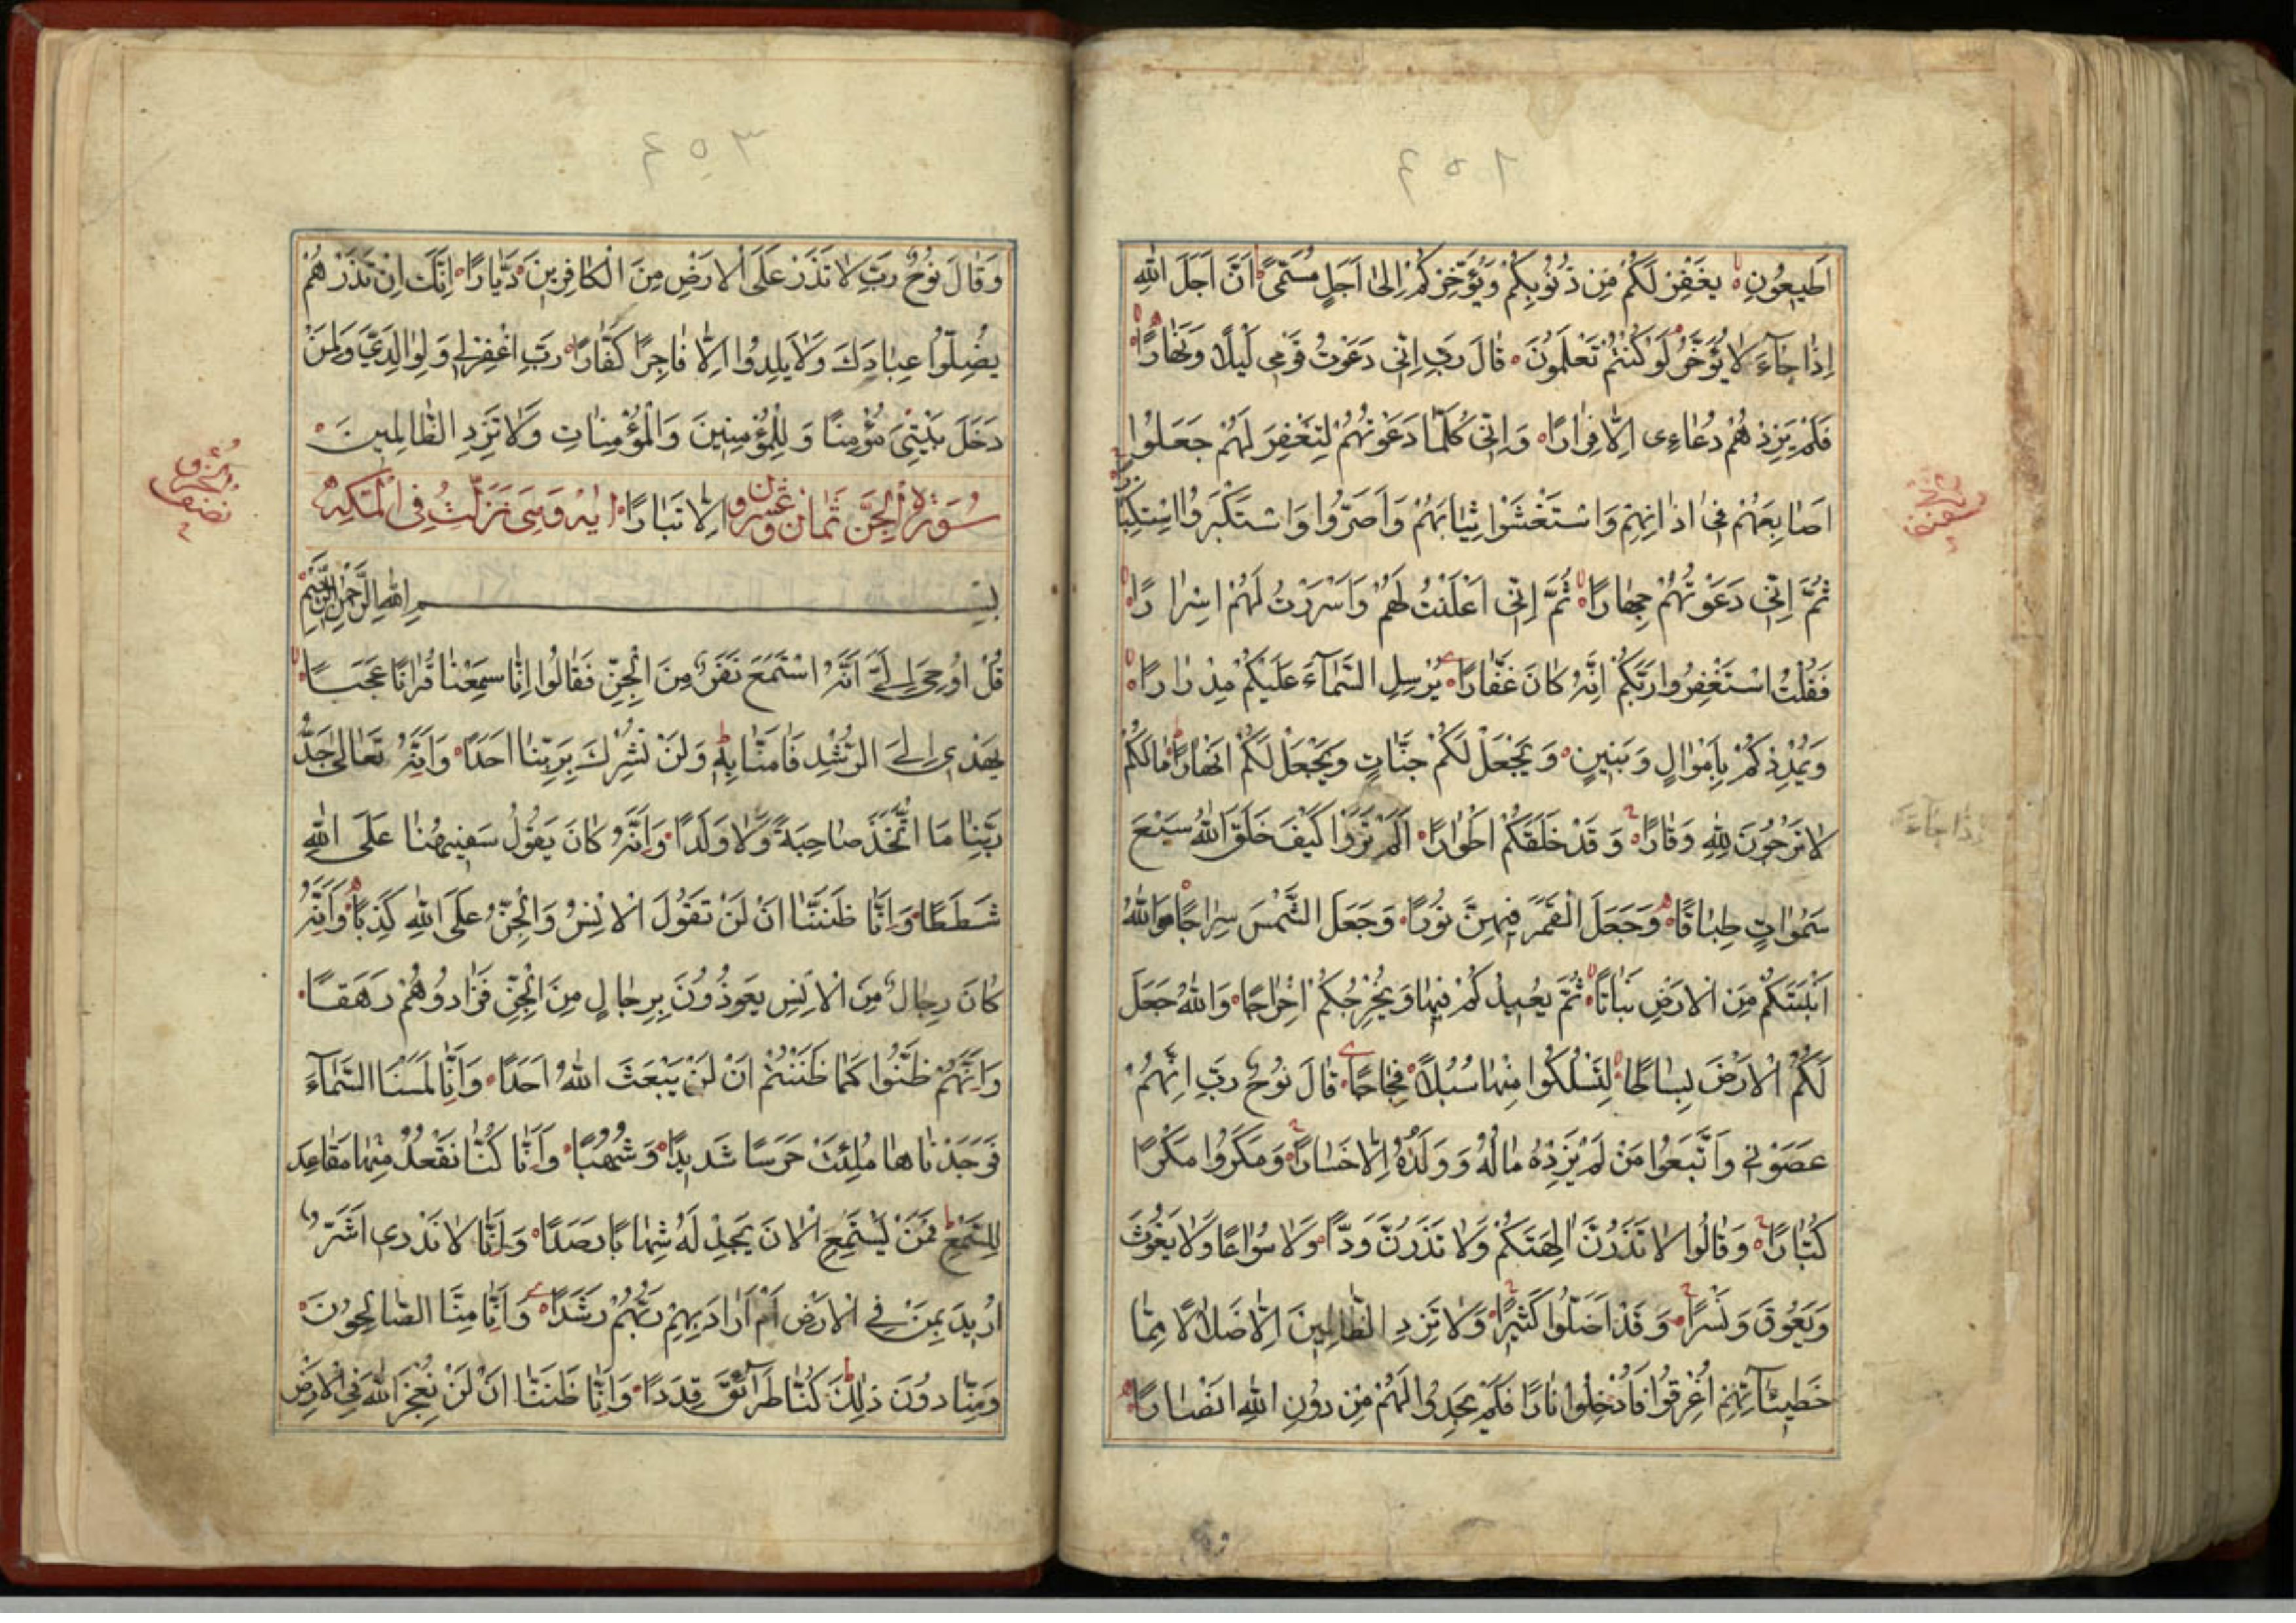 ٤٥٢
اَطيعُونِ يَغْفِرْ لَكُمْ مِن ذُنُوبِكُمْ وَيُؤَخِّرْكُمْ اِلىٰ اَجَلٍ مُسَمًّى اَنَّ اَجَلَ اللّٰهِ
اِذٰا جٰآءَ لٰا يُؤَخَّرُ لَوْ كُنْتُمْ تَعْلَمُونَ قٰالَ رَبِّ اِنّى دَعَوْتُ قَوْمى لَيْلًا وَنَهٰارًا
فَلَمْ يَزِدْهُمْ دُعٰاءِى اِلّٰا فِرٰارًا وَاِنّى كُلَّمٰا دَعَوْتُهُمْ لِتَغْفِرَ لَهُمْ جَعَلُوا
اَصٰابِعَهُمْ فى اٰذٰانِهِمْ وَاسْتَغْشَوْا ثِيٰابَهُمْ وَاَصَرُّوا وَاسْتَكْبَرُوا اسْتِكْبٰارًا
ثُمَّ اِنّى دَعَوْتُهُمْ جِهٰارًا ثُمَّ اِنّى اَعْلَنْتُ لَهُمْ وَاَسْرَرْتُ لَهُمْ اِسْرٰارًا
فَقُلْتُ اسْتَغْفِرُوا رَبَّكُمْ اِنَّهُ كٰانَ غَفّٰارًا يُرْسِلِ السَّمٰآءَ عَلَيْكُمْ مِدْرٰارًا
وَيُمْدِدْكُمْ بِاَمْوٰالٍ وَبَنينٍ وَيَجْعَلْ لَكُمْ جَنّٰاتٍ وَيَجْعَلْ لَكُمْ اَنْهٰارًا مٰالَكُمْ
لٰا تَرْجُونَ لِلّٰهِ وَقٰارًا وَقَدْ خَلَقَكُمْ اَطْوٰارًا اَلَمْ تَرَوْا كَيْفَ خَلَقَ اللّٰهُ سَبْعَ
سَمٰوٰاتٍ طِبٰاقًا وَجَعَلَ الْقَمَرَ فيهِنَّ نُورًا وَجَعَلَ الشَّمْسَ سِرٰاجًا وَاللّٰهُ
اَنْبَتَكُمْ مِنَ الْاَرْضِ نَبٰاتًا ثُمَّ يُعيدُكُمْ فيهٰا وَيُخْرِجُكُمْ اِخْرٰاجًا وَاللّٰهُ جَعَلَ
لَكُمُ الْاَرْضَ بِسٰاطًا لِتَسْلُكُوا مِنْهٰا سُبُلًا فِجٰاجًا قٰالَ نُوحٌ رَبِّ اِنَّهُمْ
عَصَوْنى وَاتَّبَعُوا مَنْ لَمْ يَزِدْهُ مٰالُهُ وَوَلَدُهُ اِلّٰا خَسٰارًا وَمَكَرُوا مَكْرًا
كُبّٰارًا وَقٰالُوا لٰا تَذَرُنَّ اٰلِهَتَكُمْ وَلٰا تَذَرُنَّ وَدًّا وَلٰا سُوٰاعًا وَلٰا يَغُوثَ
وَيَعُوقَ وَنَسْرًا وَقَدْ اَضَلُّوا كَثيرًا وَلٰا تَزِدِ الظّٰالِمينَ اِلّٰا ضَلٰالًا مِمّٰا
خَطيئٰآتِهِمْ اُغْرِقُوا فَاُدْخِلُوا نٰارًا فَلَمْ يَجِدُوا لَهُمْ مِنْ دُونِ اللّٰهِ اَنْصٰارًا
اِذٰا جٰآءَ
٤٥٣
وَقٰالَ نُوحٌ رَبِّ لٰا تَذَرْ عَلَى الْاَرْضِ مِنَ الْكٰافِرينَ دَيّٰارًا اِنَّكَ اِنْ تَذَرْهُمْ
يُضِلُّوا عِبٰادَكَ وَلٰا يَلِدُوا اِلّٰا فٰاجِرًا كَفّٰارًا رَبِّ اغْفِرْلى وَلِوٰالِدَىَّ وَلِمَنْ
دَخَلَ بَيْتِىَ مُؤْمِنًا وَلِلْمُؤْمِنينَ وَالْمُؤْمِنٰاتِ وَلٰا تَزِدِ الظّٰالِمينَ
اِلّٰا تَبٰارًا سُورَةُ الْجِنِّ ثَمٰان وَعِشْرُونَ اٰيَة وَهِىَ نَزَلَتْ فِى الْمَكِّهِ
بِسْمِ اللّٰهِ الرَّحْمٰنِ الرَّحيمِ
قُلْ اُوحِىَ اِلَىَّ اَنَّهُ اسْتَمَعَ نَفَرٌ مِنَ الْجِنِّ فَقٰالُوا اِنّٰا سَمِعْنٰا قُرْاٰنًا عَجَبًا
يَهْدى اِلَى الرُّشْدِ فَاٰمَنّٰا بِهِ وَلَنْ نُشْرِكَ بِرَبِّنٰا اَحَدًا وَاَنَّهُ تَعٰالىٰ جَدُّ
رَبِّنٰا مَا اتَّخَذَ صٰاحِبَةً وَلٰا وَلَدًا وَاَنَّهُ كٰانَ يَقُولُ سَفيهُنٰا عَلَى اللّٰهِ
شَطَطًا وَاَنّٰا ظَنَنّٰا اَنْ لَنْ تَقُولَ الْاِنْسُ وَالْجِنُّ عَلَى اللّٰهِ كَذِبًا وَاَنَّهُ
كٰانَ رِجٰالٌ مِنَ الْاِنْسِ يَعُوذُونَ بِرِجٰالٍ مِنَ الْجِنِّ فَزٰادُوهُمْ رَهَقًا
وَاَنَّهُمْ ظَنُّوا كَمٰا ظَنَنْتُمْ اَنْ لَنْ يَبْعَثَ اللّٰهُ اَحَدًا وَاَنّٰا لَمَسْنَا السَّمٰآءَ
فَوَجَدْنٰاهٰا مُلِئَتْ حَرَسًا شَديدًا وَشُهُبًا وَاَنّٰا كُنّٰا نَقْعُدُ مِنْهٰا مَقٰاعِدَ
لِلسَّمْعِ فَمَنْ يَسْتَمِعِ الْاٰنَ يَجِدْ لَهُ شِهٰابًا رَصَدًا وَاَنّٰا لٰا نَدْرى اَشَرٌّ
اُريدَ بِمَنْ فِى الْاَرْضِ اَمْ اَرٰادَ بِهِمْ رَبُّهُمْ رَشَدًا وَاَنّٰا مِنَّا الصّٰالِحُونَ
وَمِنّٰا دُونَ ذٰلِكَ كُنّٰا طَرٰآئِقَ قِدَدًا وَاَنّٰا ظَنَنّٰا اَنْ لَنْ نُعْجِزَ اللّٰهَ فِى الْاَرْضِ